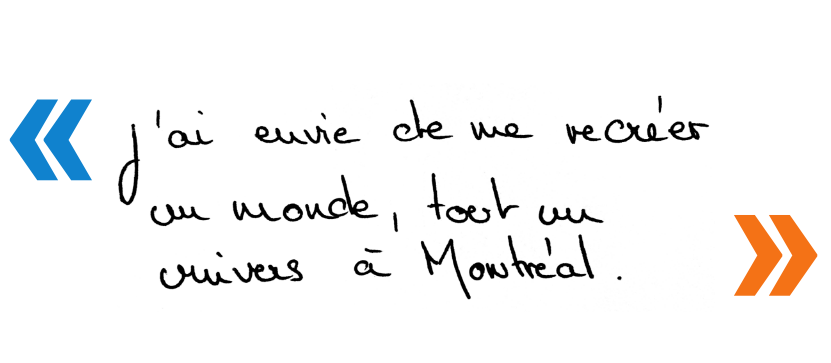 « j'ai envie de me recréer
un monde, tout un
univers à Montréal. »